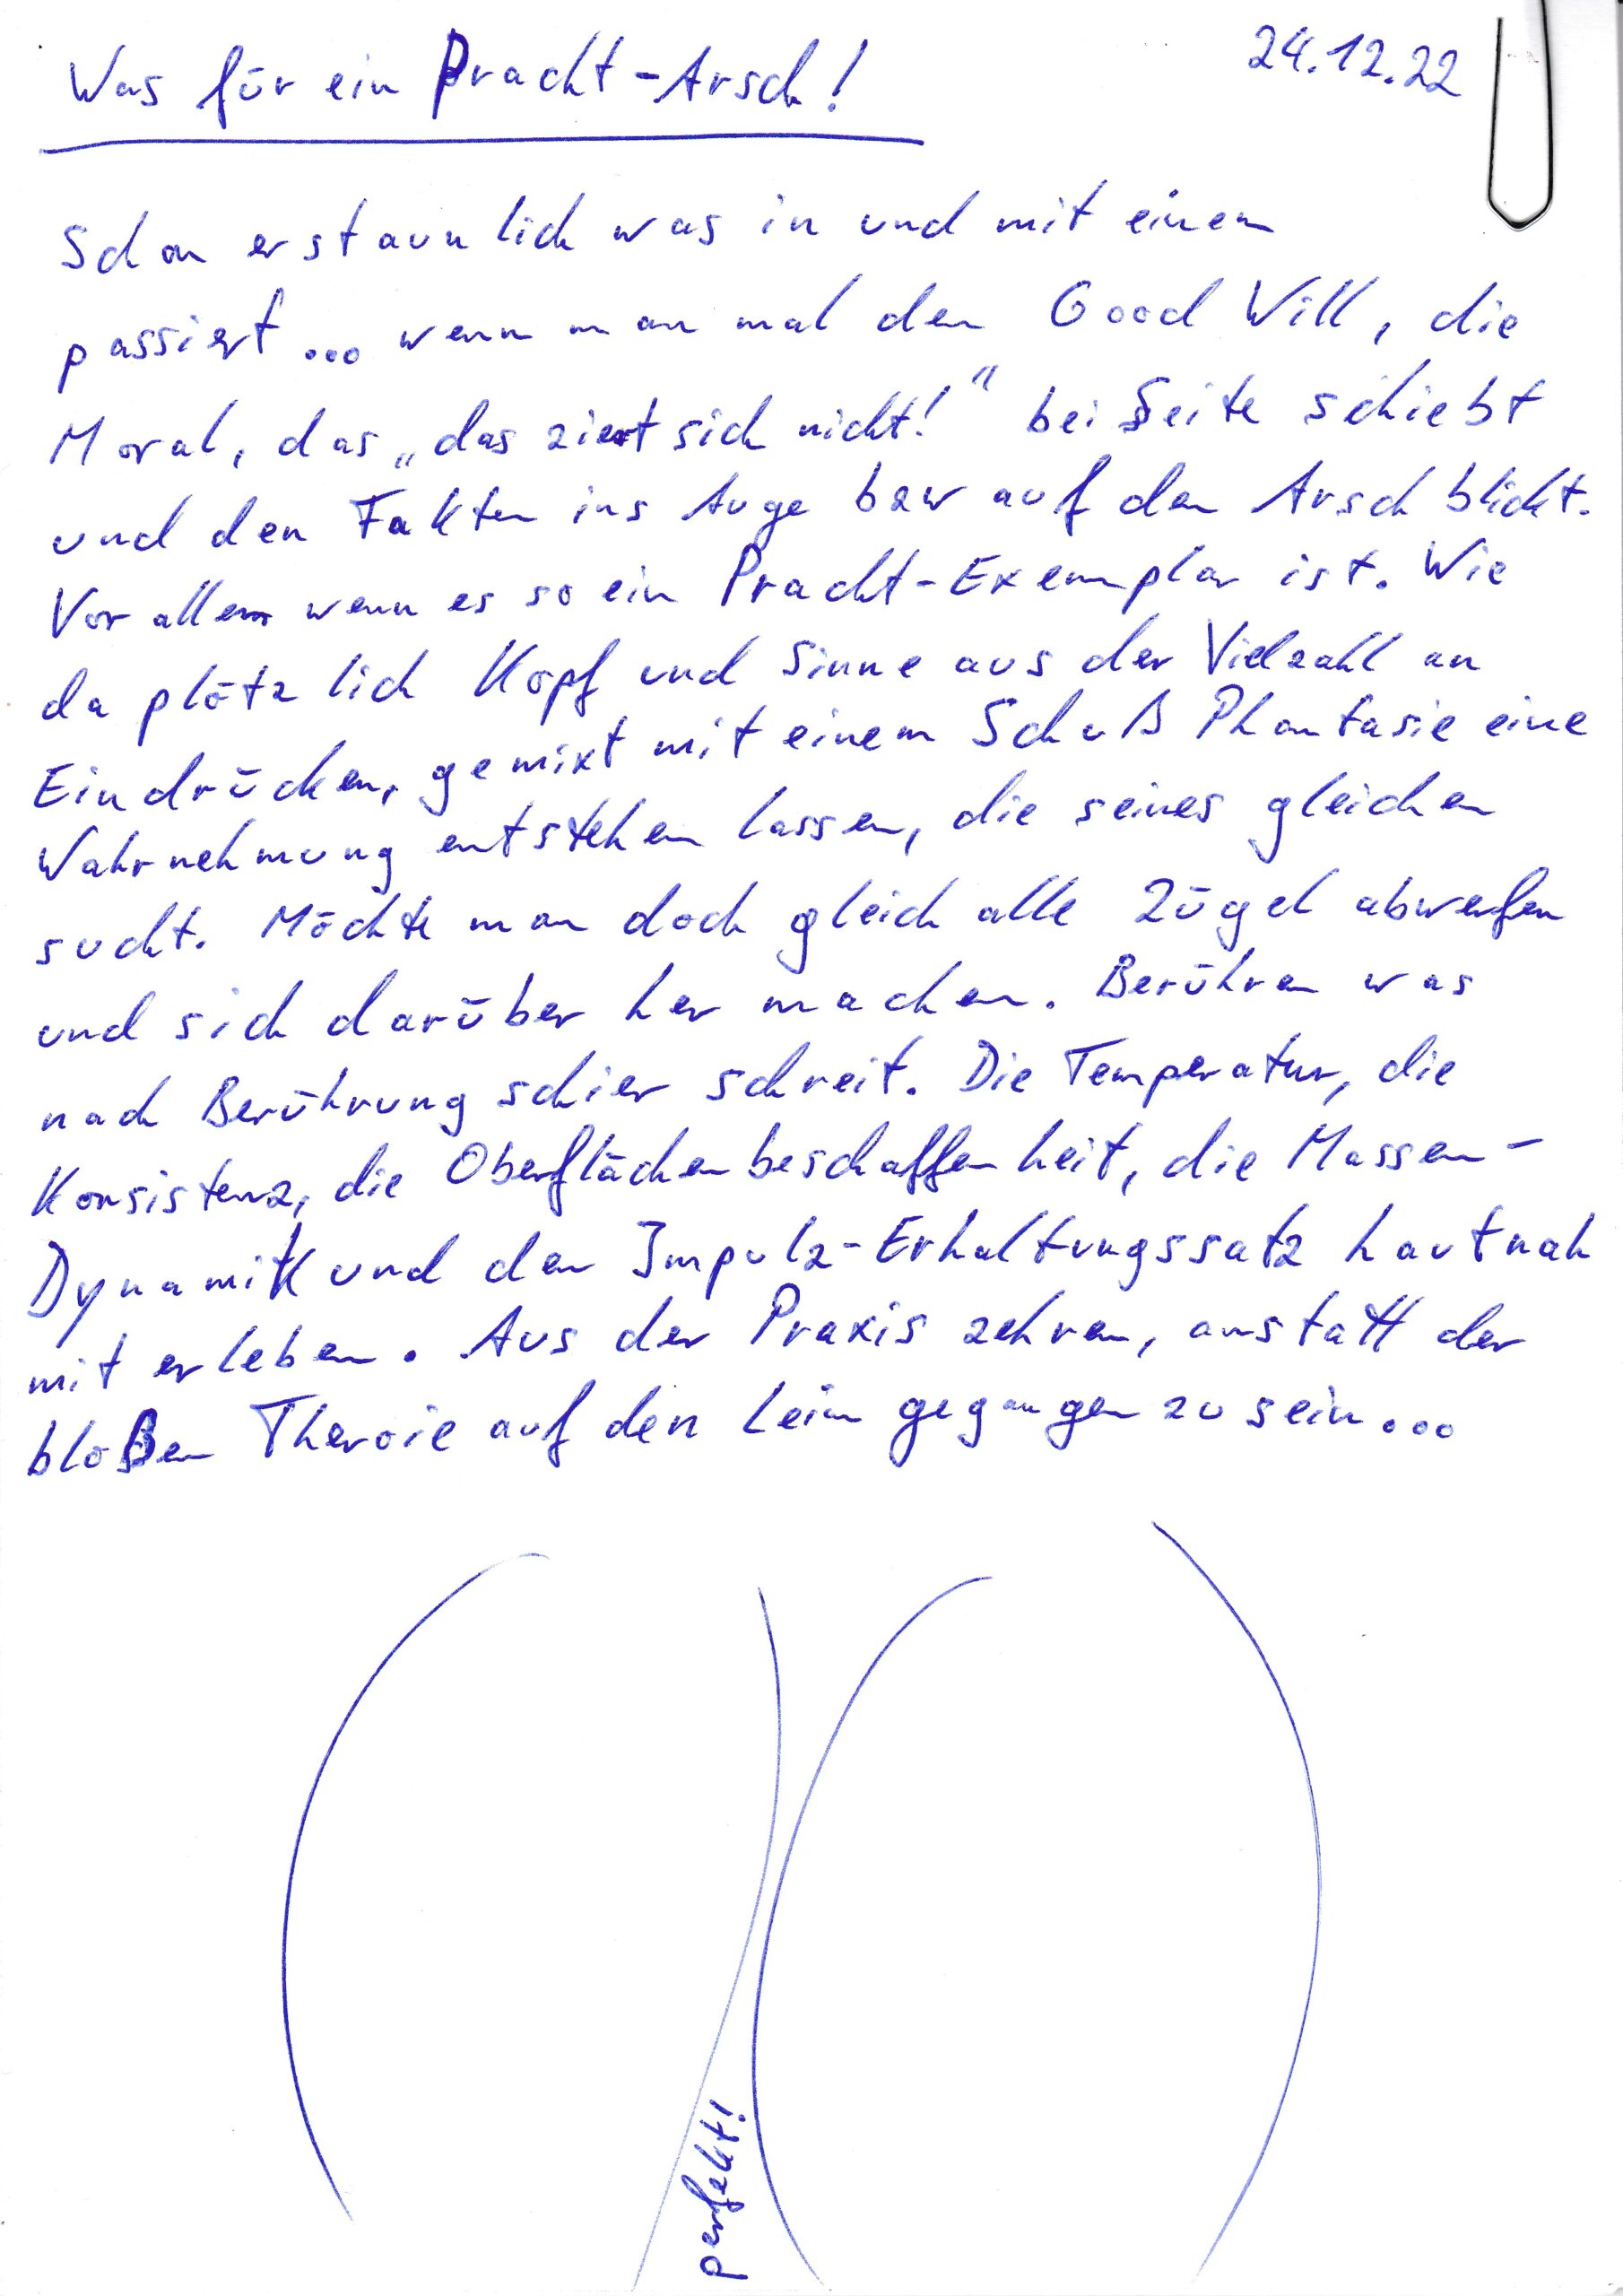 24.12.22
Was für ein Pracht-Arsch!
Schon erstaunlich was in und mit einem
passiert... wenn man mal den Good Will, die
Moral, das „das ziert sich nicht!" bei Seite schiebt
und den Fakten ins Auge bzw auf den Arsch blickt.
Vor allem wenn es so ein Pracht-Exemplar ist. Wie
da plötzlich Kopf und Sinne aus der Vielzahl an
Eindrücken, gemixt mit einem Schuß Phantasie eine
Wahrnehmung entstehen lassen, die seines gleichen
sucht. Möchte man doch gleich alle Zügel abwerfen
und sich darüber her machen. Berühren was
nach Berührung schier schreit. Die Temperatur, die
Konsistenz, die Oberflächenbeschaffenheit, die Massen-
Dynamik und den Impulz-Erhaltungssatz hautnah
mit erleben. Aus der Praxis zehren, anstatt der
bloßen Theroie auf den Leim gegangen zu sein...
perfekt!